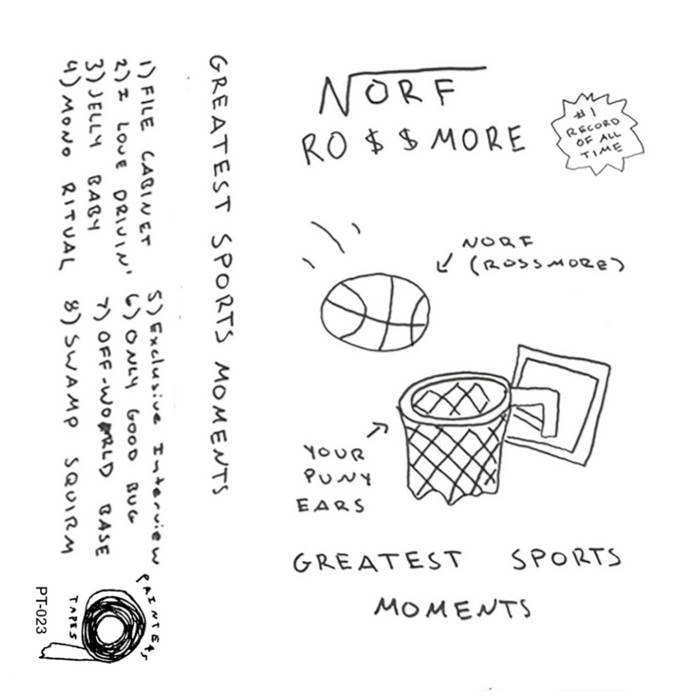 NORF
RO$$MORE
#1
RECORD
OF ALL
TIME
NORF
(ROSSMORE)
YOUR
PUNY
EARS
GREATEST SPORTS
MOMENTS
GREATEST SPORTS MOMENTS
1) FILE CABINET
2) I LOVE DRIVIN'
3) JELLY BABY
4) MONO RITUAL
5) Exclusive Interview
6) ONLY GOOD BUG
7) OFF-WORLD BASE
8) SWAMP SQUIRM
PAINTERS
TAPES
PT-023